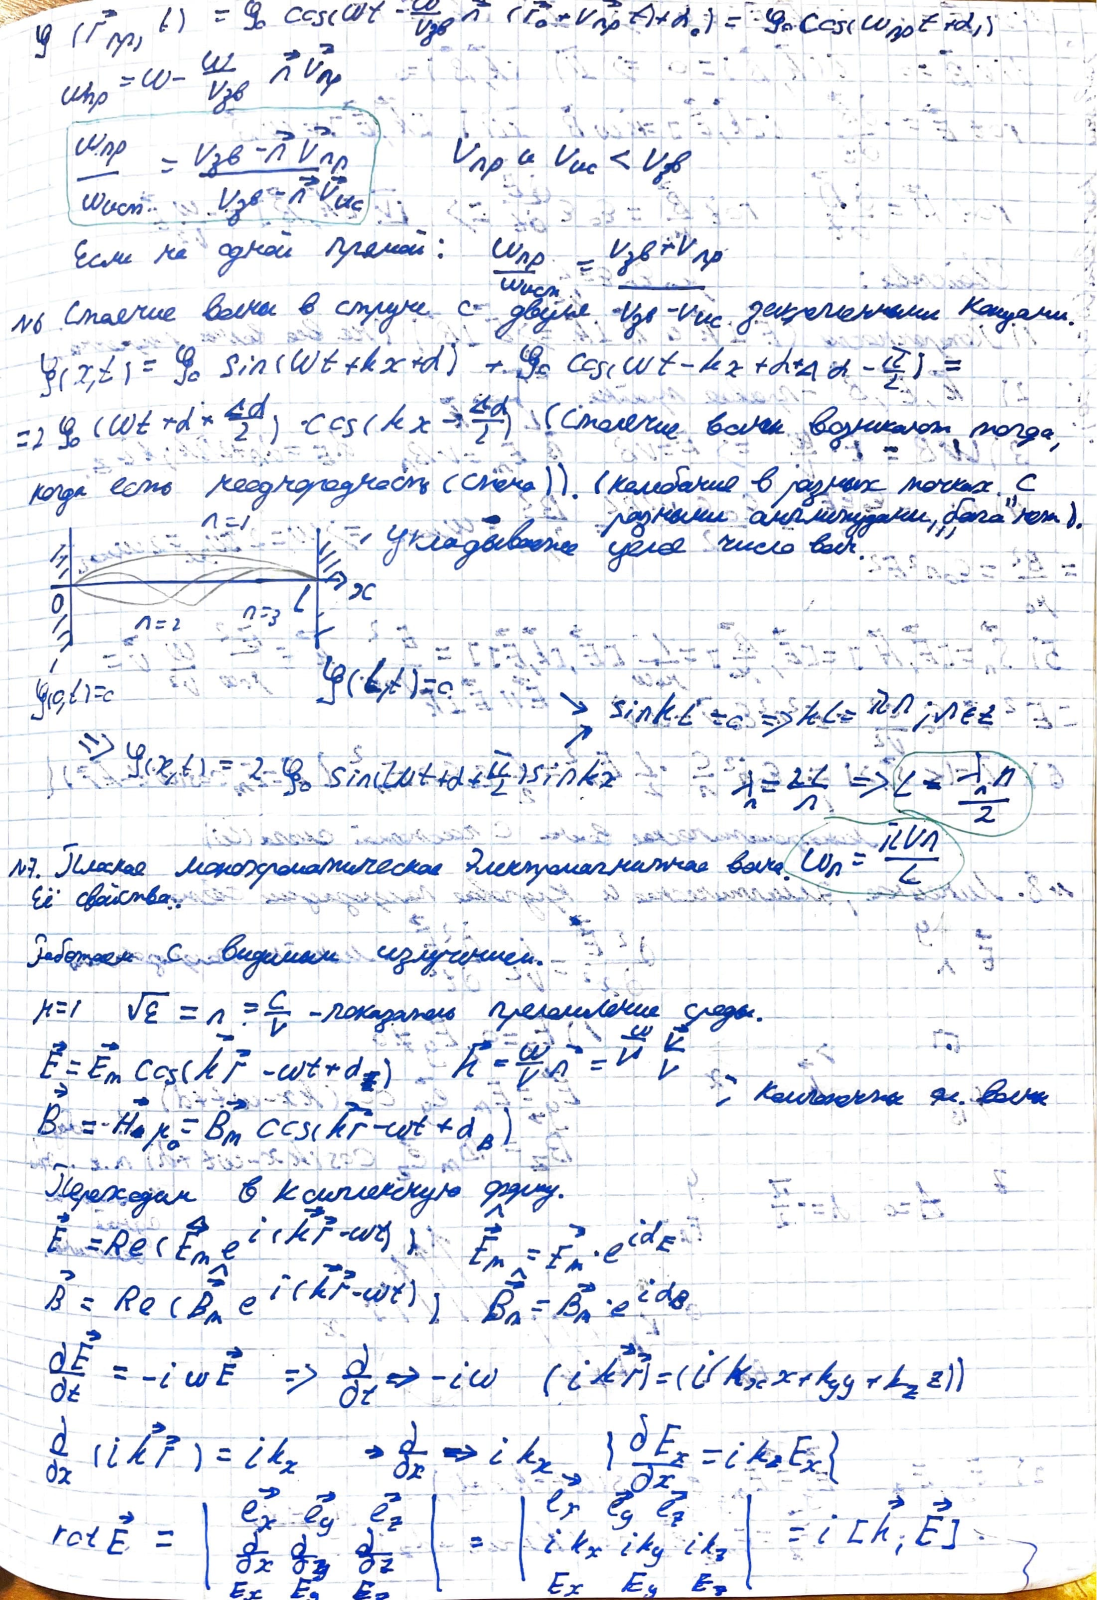 φ(r⃗пр, t) = φ₀ cos(ωt - ω/Vзв n⃗ (r⃗₀ + V⃗пр t) + α₀) = φ₀ cos(ωпр t + α₁)
ωпр = ω - ω/Vзв n⃗ V⃗пр
ωпр/ωист. = (Vзв - n⃗ V⃗пр)/(Vзв - n⃗ V⃗ис) Vпр и Vис < Vзв
Если на одной прямой: ωпр/ωист = (Vзв + Vпр)/(Vзв - Vис)
№6 Стоячие волны в струне с двумя закрепленными концами.
φ(x,t) = φ₀ sin(ωt + kx + α) + φ₀ cos(ωt - kx + α + Δα - π/2) =
= 2φ₀ (ωt + α + Δα/2) · cos(kx - Δα/2) (Стоячие волны возникают тогда,
когда есть неоднородность (стена)). (колебание в разных точках с
разными амплитудами, нет).
n=1 Укладывается целое число волн.
0 L x
n=2 n=3
φ(0,t)=0 φ(L,t)=0
sin kL = 0 => kL = πn; n∈Z
=> φ(x,t) = 2φ₀ sin(ωt + α + π/2) sin kx λₙ = 2L/n => L = λₙn/2
№7. Плоская монохроматическая Электромагнитная волна. ωₙ = πVn/L
Её свойства.
Работаем с видимым излучением.
μ=1 √ε = n = c/V - показатель преломления среды.
E⃗ = E⃗m cos(k⃗r⃗ - ωt + αE) k⃗ = ω/V n⃗ = ω/V V⃗/V
B⃗ = H⃗ μ₀ = B⃗m cos(k⃗r⃗ - ωt + αB) компоненты эл. волны
Переходим в комплексную форму.
E⃗ = Re(Ê⃗m e^{i(k⃗r⃗-ωt)}); Ê⃗m = E⃗m · e^{iαE}
B⃗ = Re(B̂⃗m e^{i(k⃗r⃗-ωt)}); B̂⃗m = B⃗m · e^{iαB}
∂E⃗/∂t = -iωE⃗ => ∂/∂t => -iω (ik⃗r⃗) = (i(kₓx + k_y y + k_z z))
∂/∂x (ik⃗r⃗) = ikₓ → ∂/∂x => ikₓ {∂Eₓ/∂x = ikₓEₓ}
rot E⃗ = | e⃗x e⃗y e⃗z | = | e⃗x e⃗y e⃗z | = i[k⃗, E⃗].
∂/∂x ∂/∂y ∂/∂z ikx iky ikz
Ex Ey Ez Ex Ey Ez